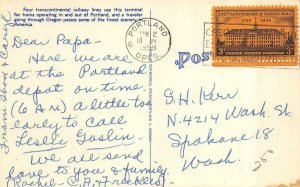 Four transcontinental railway lines use this terminal
for trains operating in and out of Portland, and a traveler
going through Oregon passes some of the finest scenery in
America.
Dear Papa -
Here we are
at the Portland
depot on time
(6 AM) a little too
early to call
Leslie Goslin.
We all send
love to you & family.
PORTLAND
OREG
200TH ANNIVERSARY OF NASSAU HALL
1756 1956
3¢
Pos
S. H. Kerr
N. 4214 Wash. St
Spokane 18
Wash.